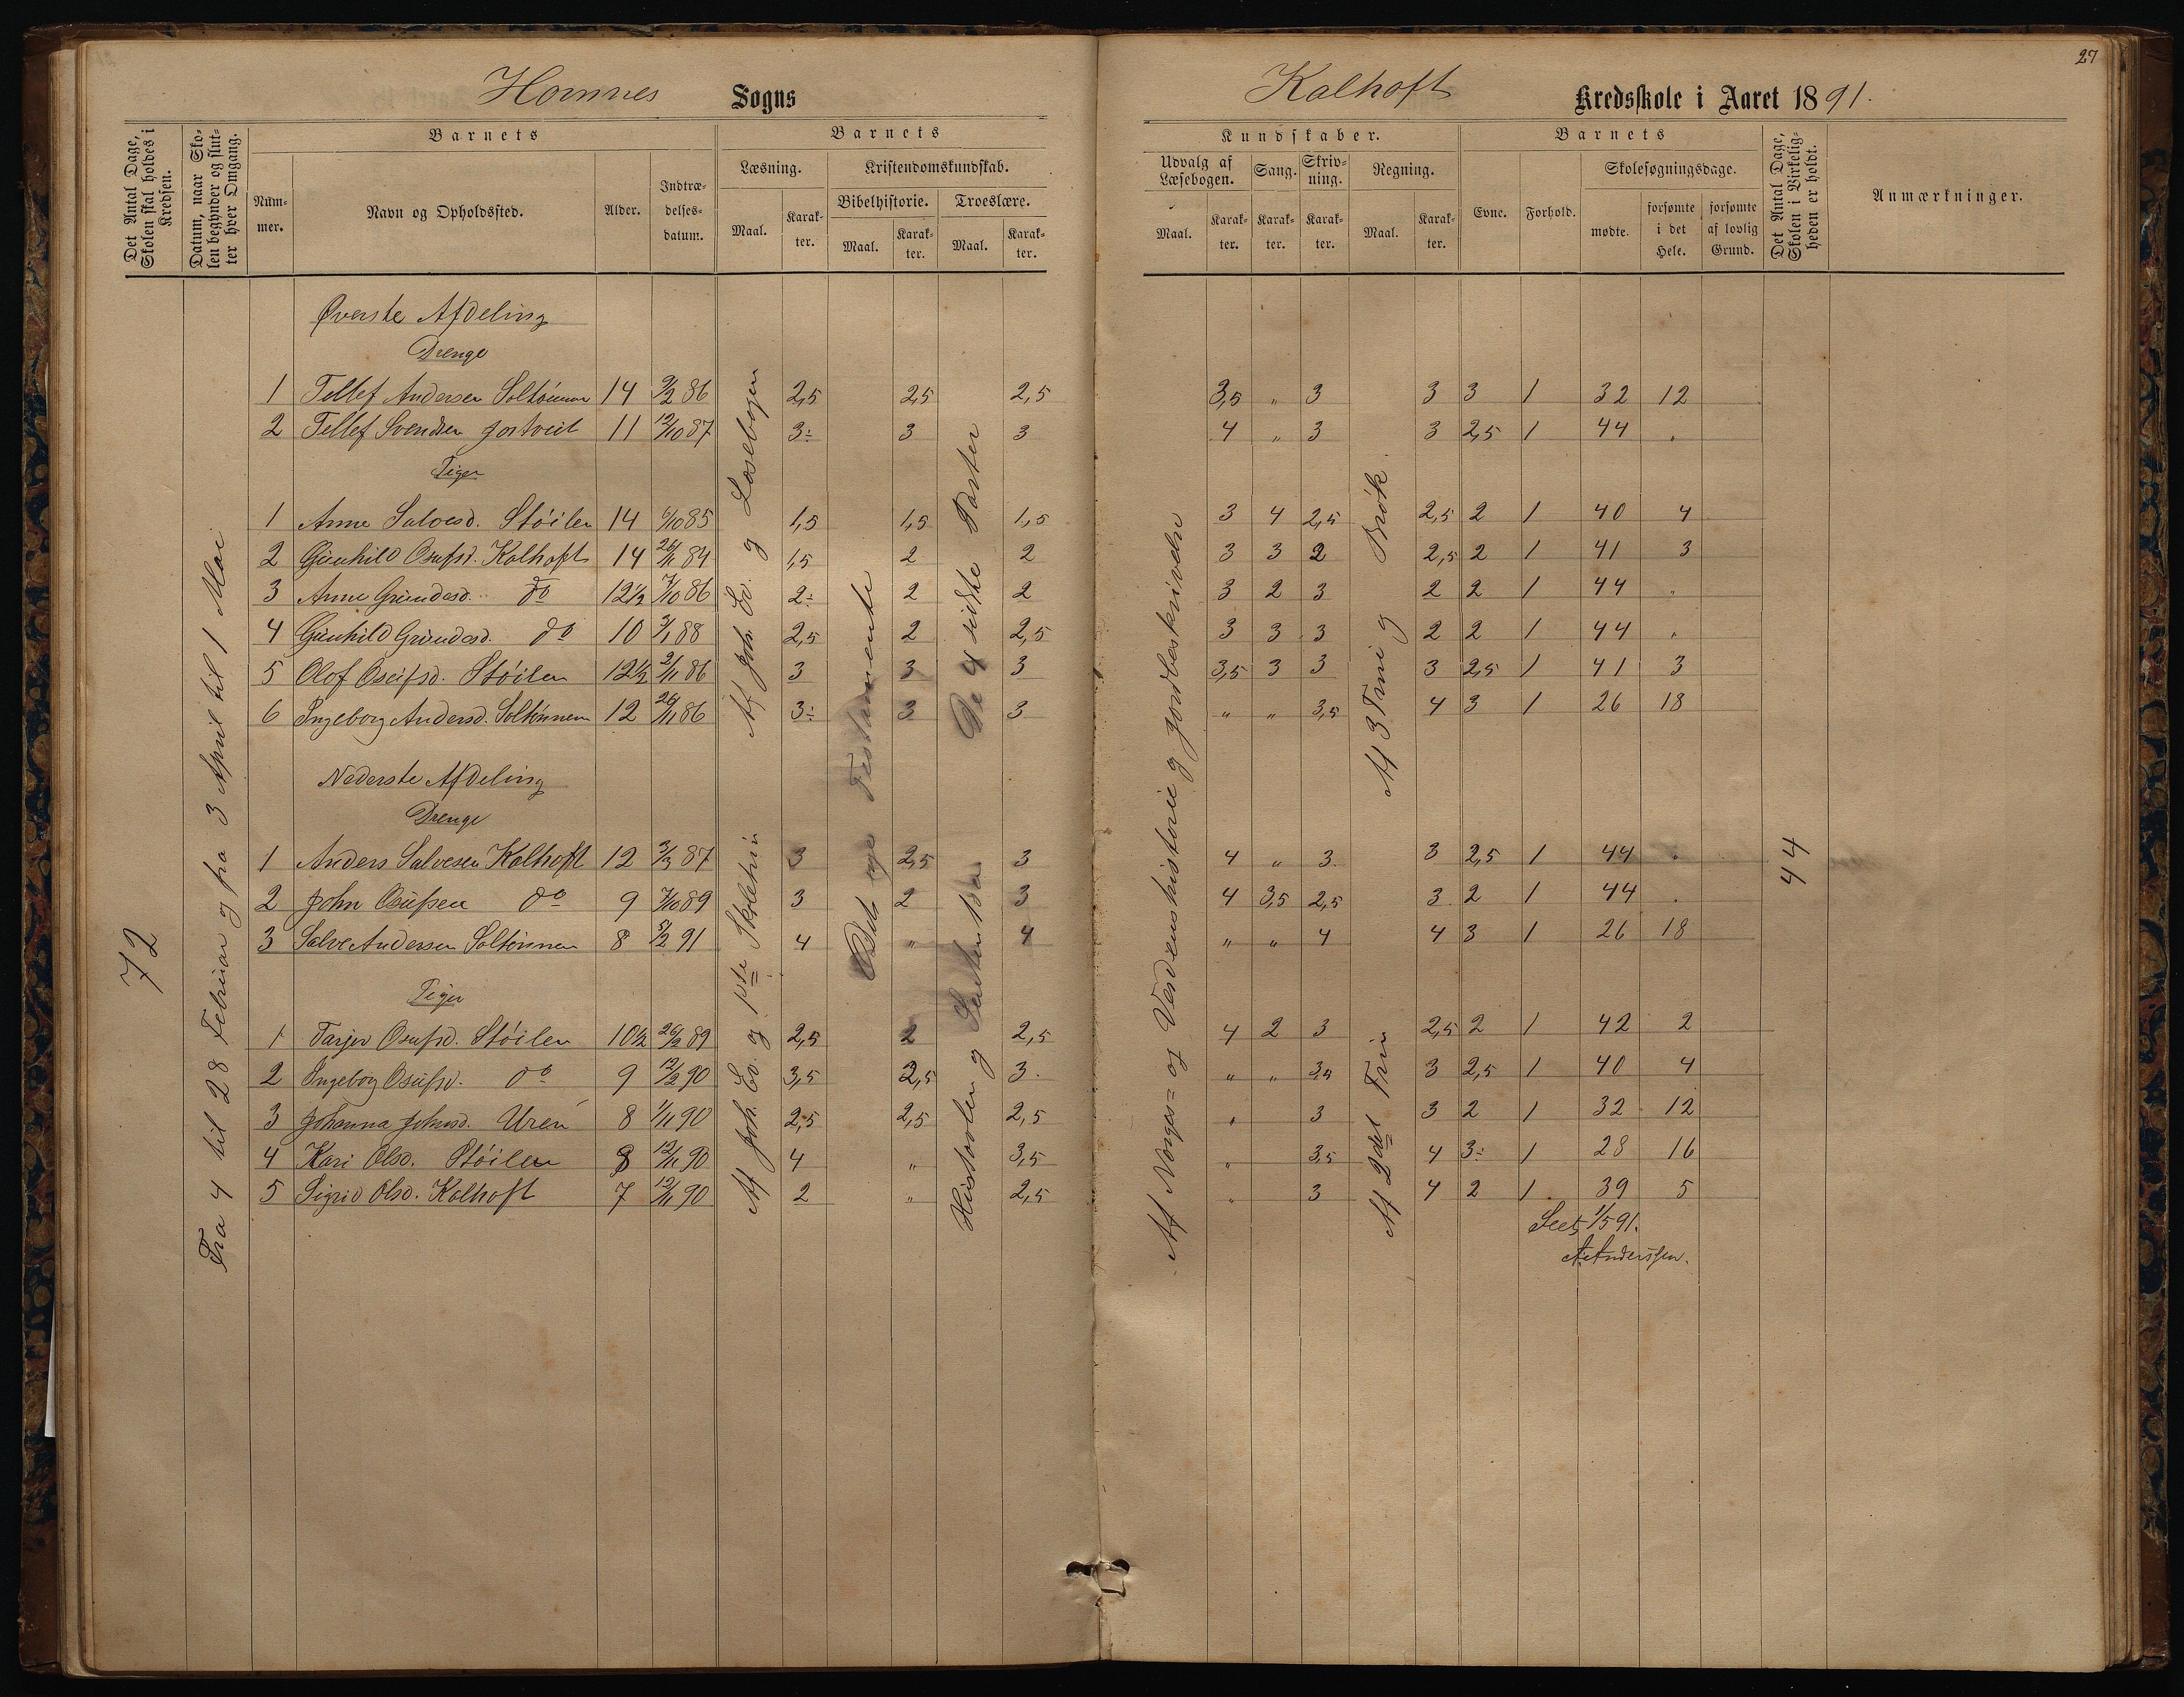 27
Homnes Sogns
Kalhoft Kredsskole i Aaret 1891.
Det Antal Dage, Skolen skal holdes i Kredsen.
Datum, naar Skolen begynder og slutter hver Omgang.
Barnets
Nummer.
Navn og Opholdssted.
Alder.
Indtrædelsesdatum.
Barnets
Læsning.
Maal.
Karakter.
Kristendomskundskab.
Bibelhistorie.
Maal.
Karakter.
Troeslære.
Maal.
Karakter.
Kundskaber.
Udvalg af Læsebogen.
Maal.
Karakter.
Sang.
Karakter.
Skrivning.
Karakter.
Regning.
Maal.
Karakter.
Barnets
Evne.
Forhold.
Skolesøgningsdage.
mødte.
forsømte i det Hele.
forsømte af lovlig Grund.
Det Antal Dage, Skolen i Virkeligheden er holdt.
Anmærkninger.
72
Fra 4 til 28 Februar og fra 3 April til 1 Mai
Øverste Afdeling
Drenge
1 Tellef Andersen 14 9/2 86 2,5 2,5 2,5 3,5 " 3 3 3 1 32 12
2 Tellef Svendsen 11 12/10 87 3- 3 3 4 " 3 3 2,5 1 44 "
Piger
1 Anne Salvesd. Støilen 14 6/10 85 1,5 1,5 1,5 3 4 2,5 2,5 2 1 40 4
2 Gunhild Osufsd. Kalhoft 14 26/11 84 1,5 2 2 3 3 2 2,5 2 1 41 3
3 Anne Gundesd. do 12½ 7/10 86 2- 2 2 3 2 3 2 2 1 44 "
4 Gunhild Gundesd. do 10 3/1 88 2,5 2 2,5 3 3 3 2 2 1 44 "
5 Olof Osufsd. Støilen 12½ 2/11 86 3 3 3 3,5 3 3 3 2,5 1 41 3
6 Ingeborg Andersd. 12 26/11 86 3- 3 3 " " 3,5 4 3 1 26 18
Af Joh. Ev. og Læsebogen
De 4 sidste Parter
Af 3 Trin og Brøk.
Nederste Afdeling
Drenge
1 Anders Salvesen Kalhoft 12 3/3 87 3 2,5 3 4 " 3 3 2,5 1 44 "
2 John Osufsen do 9 7/10 89 3 2 3 4 3,5 2,5 3 2 1 44 "
3 Salve Andersen 8 5/2 91 4 " 4 " " 4 4 3 1 26 18
Piger
1 Tarjer Osufsd. Støilen 10½ 26/2 89 2,5 2 2,5 4 2 3 2,5 2 1 42 2
2 Ingeborg Osufsd. do 9 12/2 90 3,5 2,5 3 " " 3,5 3 2,5 1 40 4
3 Johanna Johnsd. Uren 8 1/11 90 2,5 2,5 2,5 " 3 3 2 1 32 12
4 Kari Olsd. Støilen 8 12/11 90 4 " 3,5 " 3,5 4 3- 1 28 16
5 Sigrid Olsd. Kalhoft 7 12/11 90 2 " 2,5 " 3 4 2 1 39 5
Af Joh. Ev. og 1ste Skoletrin
Det nye Testamente
Hustavlen og
Af Norges- og Verdenshistorie og Jordbeskrivelse
Af 2det Trin
44
Seet, 1/5 91.
A. Anderssen.